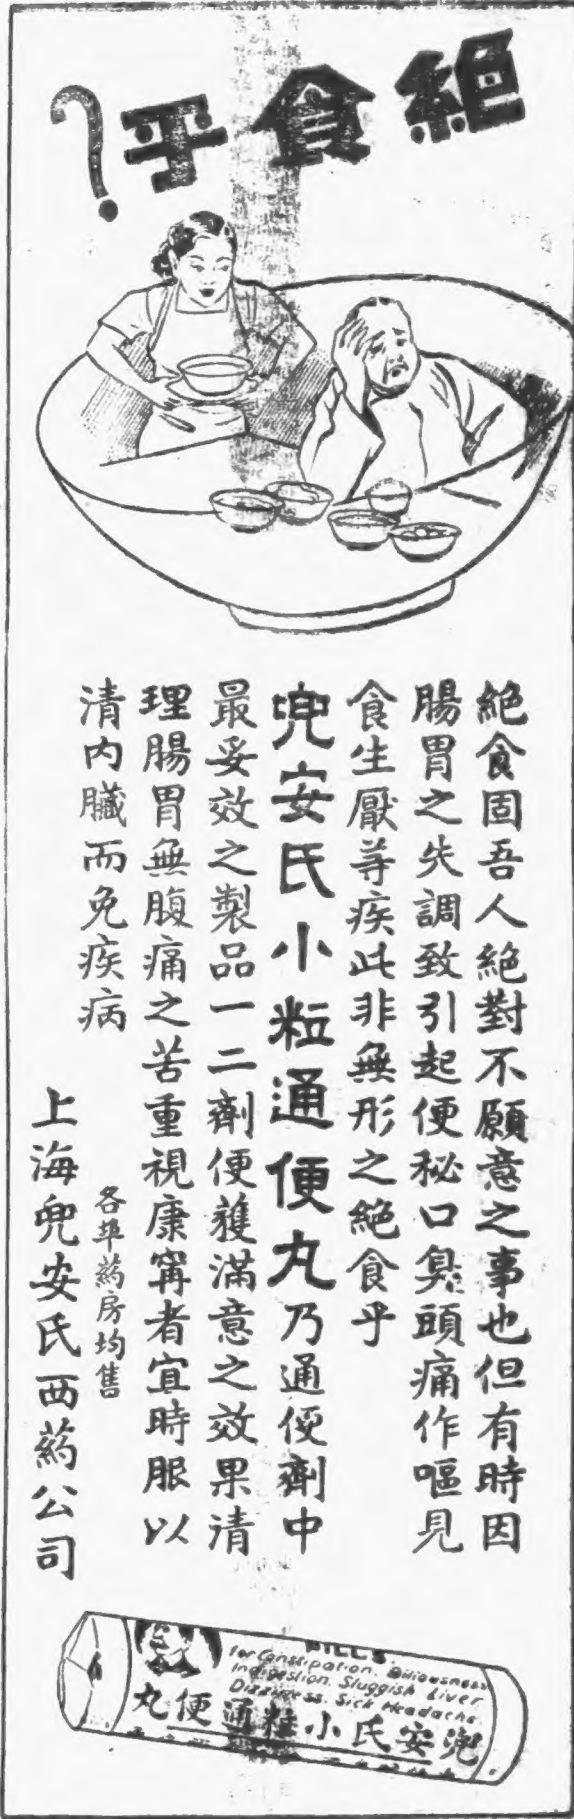 絕食乎?
絕食固吾人絕對不願意之事也但有時因
腸胃之失調致引起便秘口臭頭痛作嘔見
食生厭等疾此非無形之絕食乎
兜安氏小粒通便丸乃通便劑中
最妥效之製品一二劑便獲滿意之效果清
理腸胃無腹痛之苦重視康寧者宜時服以
清內臟而免疾病
各埠藥房均售
上海兜安氏西藥公司
PILLS
for Constipation. Biliousness
Indigestion. Sluggish Liver.
Dizziness. Sick Headache.
兜安氏小粒通便丸